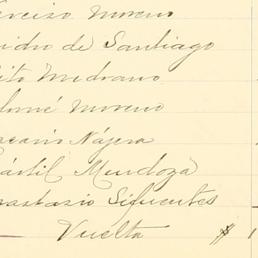 arciso Moreno
sidro de Santiago
ito Medrano
olomé Moreno
acario Nájera
Mártil Mendoza
nastasio Sifuentes
Vuelta $ 1